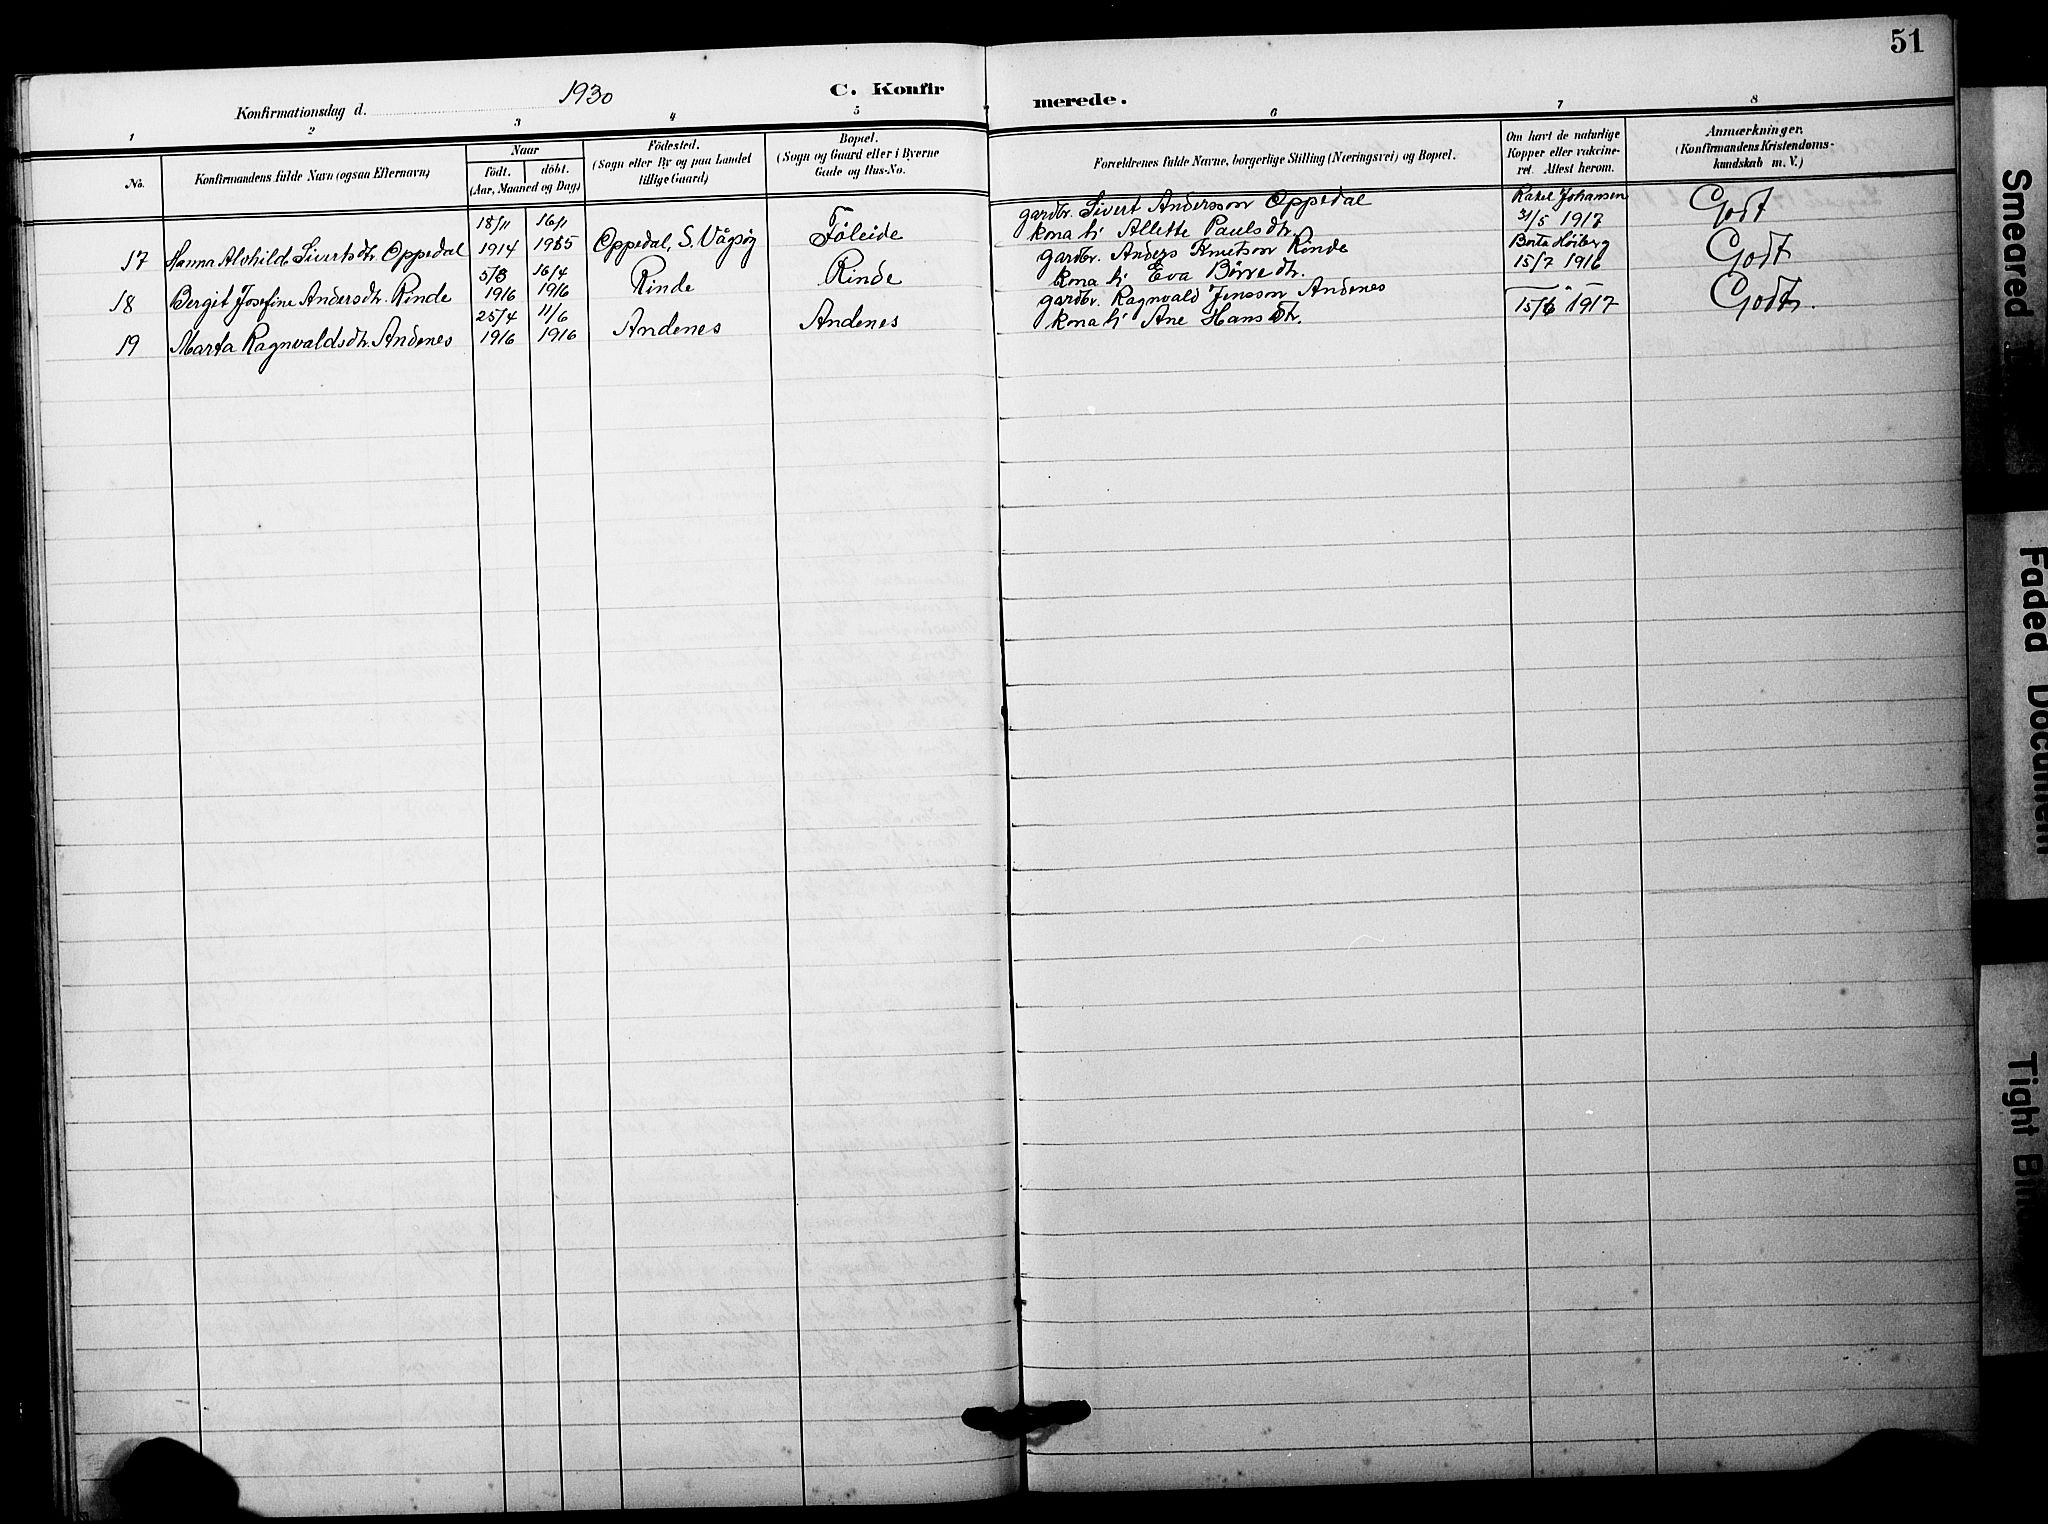 51
Konfirmationsdag d. 1930
C. Konfir
merede.
1 2 3 4 5 6 7 8
No.
Konfirmandens fulde Navn (ogsaa Efternavn)
Naar
født. døbt.
(Aar, Maaned og Dag)
Fødested.
(Sogn eller By og paa Landet
tillige Gaard)
Bopæl.
(Sogn og Gaard eller i Byerne
Gade og Hus-No.
Forældrenes fulde Navne, borgerlige Stilling (Næringsvei) og Bopæl.
Om havt de naturlige
Kopper eller vakcine-
ret. Attest herom.
Anmærkninger.
(Konfirmandens Kristendoms-
kundskab m. V.)
18/11 16/1 gardbr. Sivert Andersson Oppedal Rakel Johansen Godt
17 Hanna Alvhild Sivertsdtr. Oppedal 1914 1915 Oppedal, S. Vågsøy Føleide kona h: Allette Paulsdtr. 31/5 1917
5/3 16/4 gardbr. Anders Knutson Rinde Berta Høiberg Godt
18 Bergit Josefine Andersdtr. Rinde 1916 1916 Rinde Rinde kona h: Eva Børredtr. 15/7 1916
25/4 11/6 gardbr. Ragnvald Jensson Andenes — " — Godt
19 Marta Ragnvaldsdtr. Andenes 1916 1916 Andenes Andenes kona h: Ane Hansdtr. 15/6 1917
Smeared
Faded Document
Tight Bin